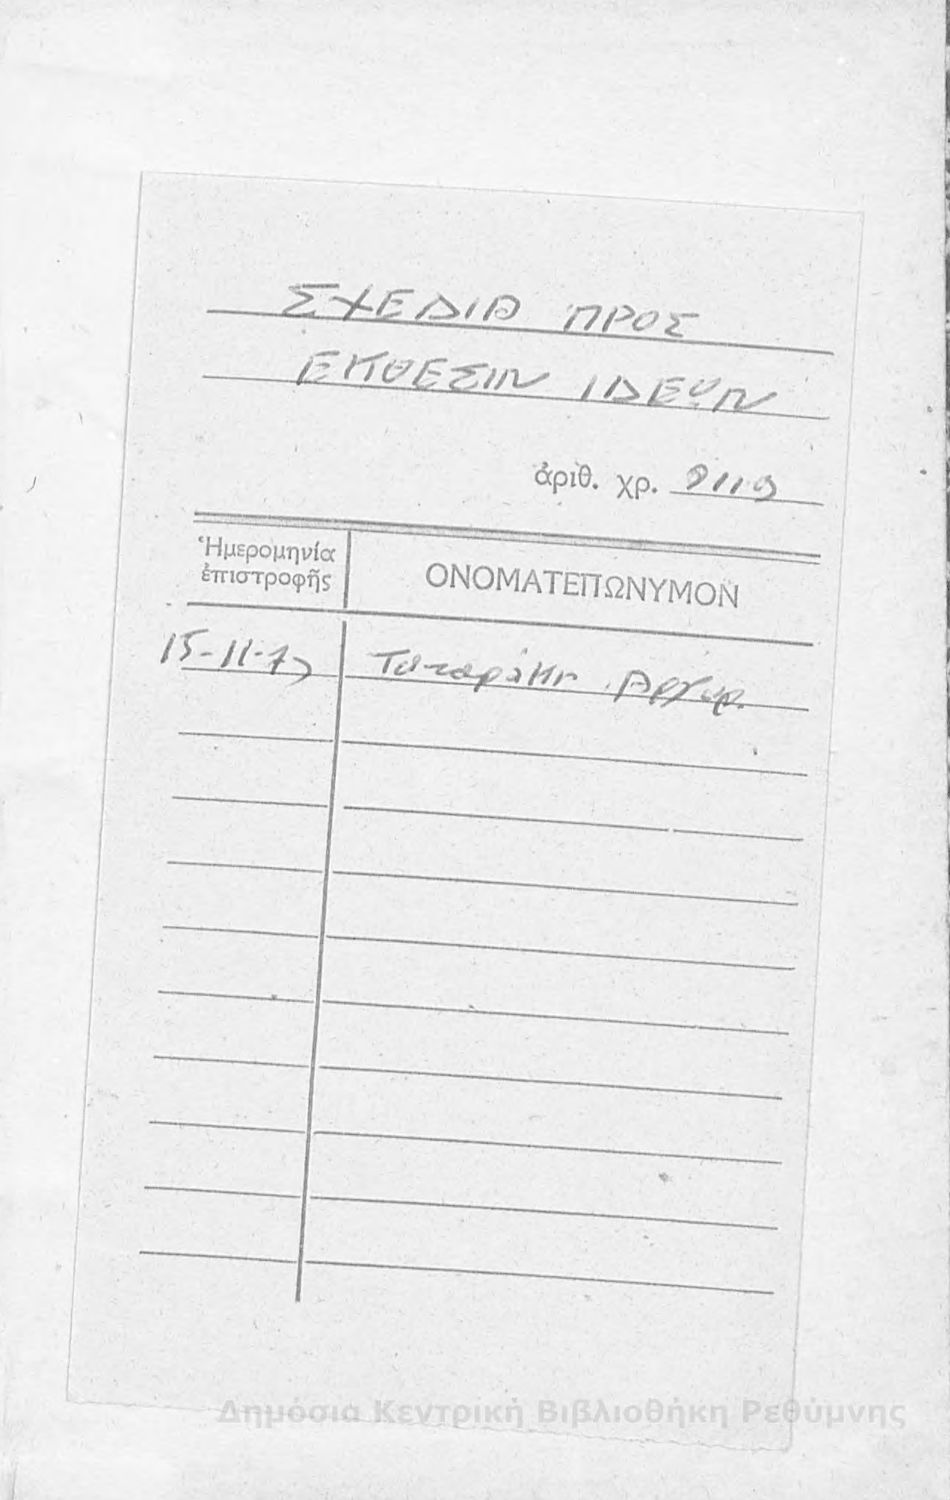 ΣΧΕΔΙΑ ΠΡΟΣ
ΕΚΘΕΣΙΝ ΙΔΕΩΝ
ἀριθ. χρ. 9119
Ἡμερομηνία
ἐπιστροφῆς
ΟΝΟΜΑΤΕΠΩΝΥΜΟΝ
15-11-73 Τσταράκη Αργυρ.
Δημόσια Κεντρική Βιβλιοθήκη Ρεθύμνης